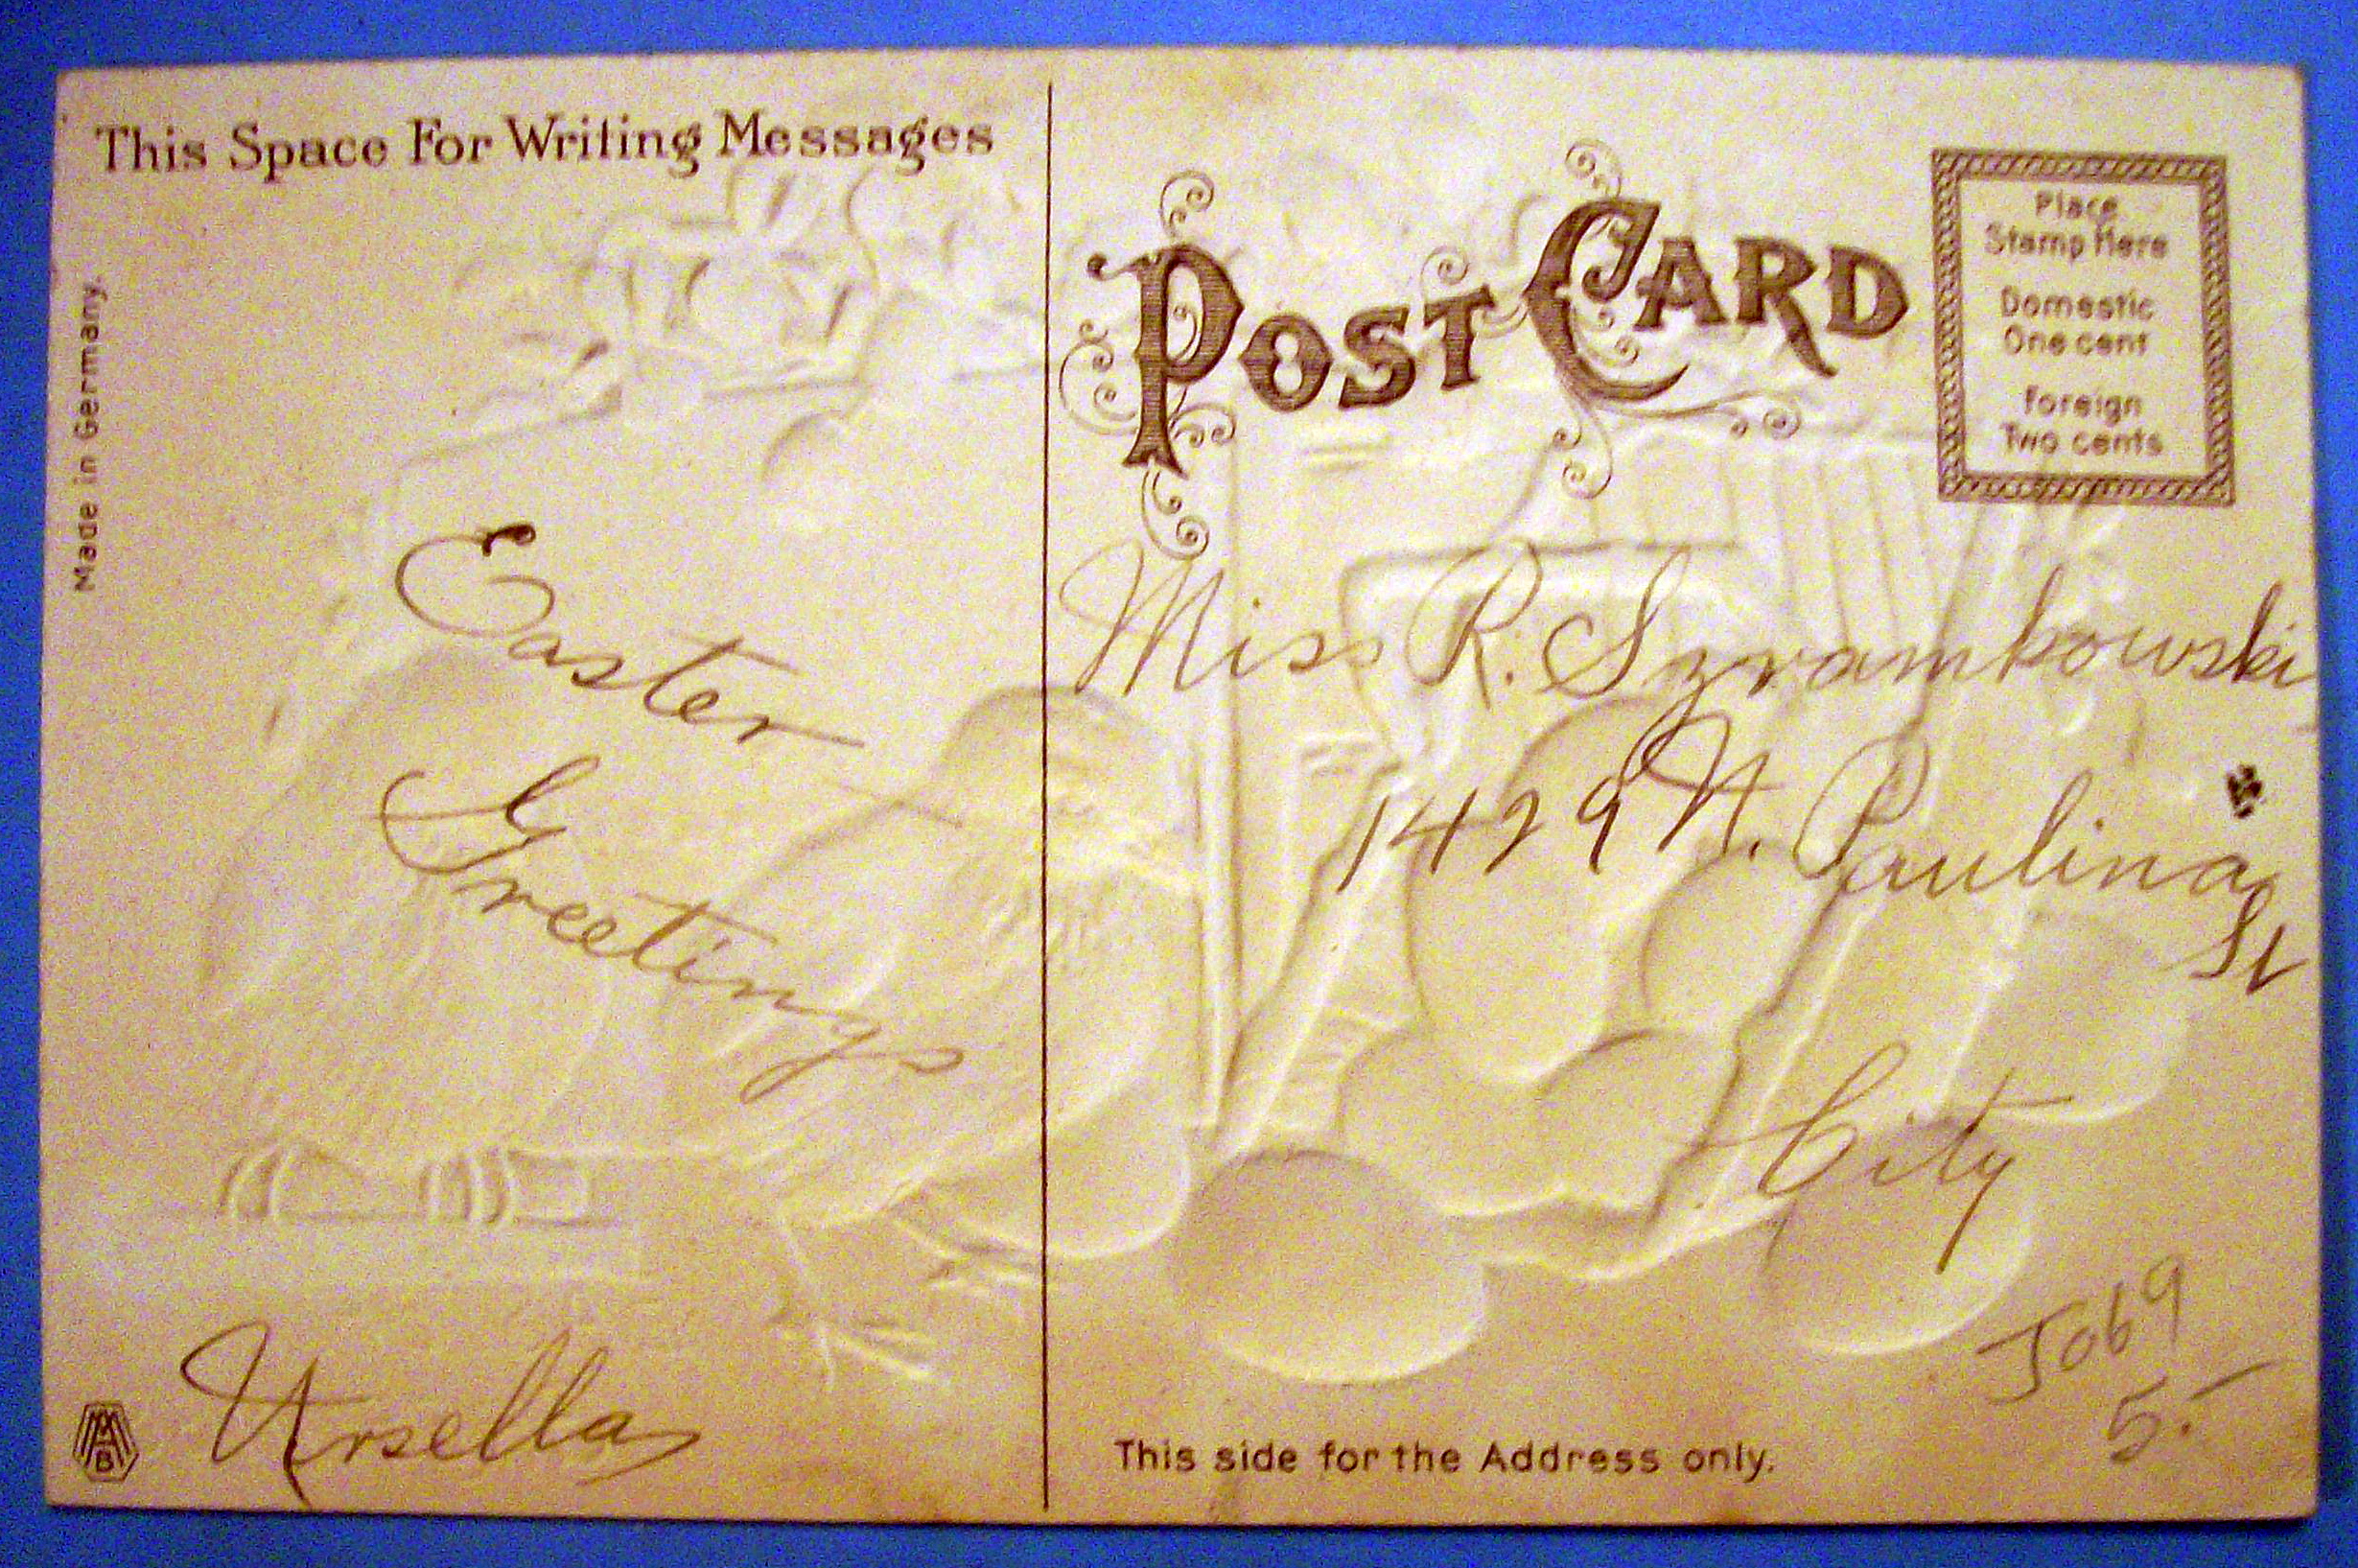 This Space For Writing Messages
Made in Germany.
Easter
Greetings
Ursella
B
POST CARD
Place
Stamp Here
Domestic
One cent
Foreign
Two cents
Miss R. Szrambowski
1429 N. Paulina
St
City
This side for the Address only.
5.-